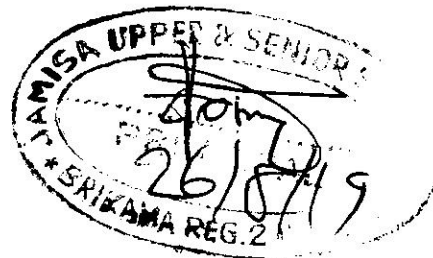 JAMISA UPPER & SENIOR S
26/8/19
* SRIKAMA REG.2